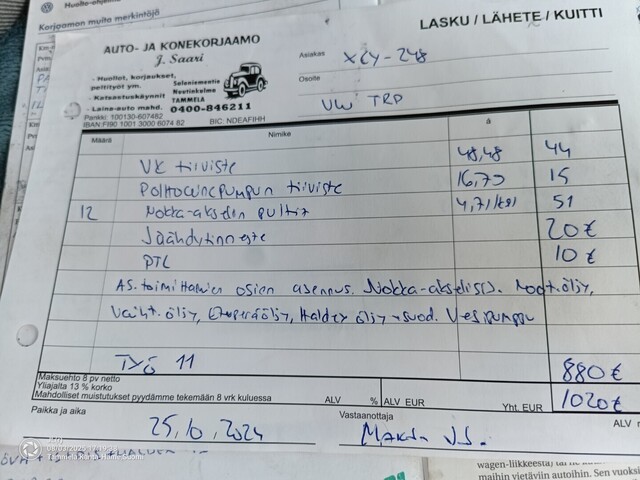 Korjaamon muita merkintöjä
LASKU / LÄHETE / KUITTI
AUTO- JA KONEKORJAAMO
J. Saari
- Huollot, korjaukset,
peltityöt ym.
- Katsastuskäynnit
- Laina-auto mahd.
TAMMELA
0400-846211
Pankki: 100130-607482
IBAN:FI90 1001 3000 6074 82 BIC: NDEAFIHH
Asiakas XCY-248
Osoite
VW TRP
Määrä Nimike á
VK tiiviste 48,48 44
Polttoainepumpun tiiviste 16,70 15
12 Nokka-akselin pultit 4,71/kpl 51
Jäähdytinneste 20€
PTL 10€
As. toimittamien osien asennus. Nokka-akseli(s). Moot.öljy,
Vaiht.öljy, Etuperäöljy, Haldex öljy + suod. Vesipumppu
Työ 11 880€
Maksuehto 8 pv netto
Yliajalta 13 % korko
Mahdolliset muistutukset pyydämme tekemään 8 vrk kuluessa ALV % ALV EUR Yht. EUR 1020€
Paikka ja aika 25.10.2024
Vastaanottaja
ALV
wagen-liikkeestä) tai
maihin vietäviin autoihin. Sen vuoksi